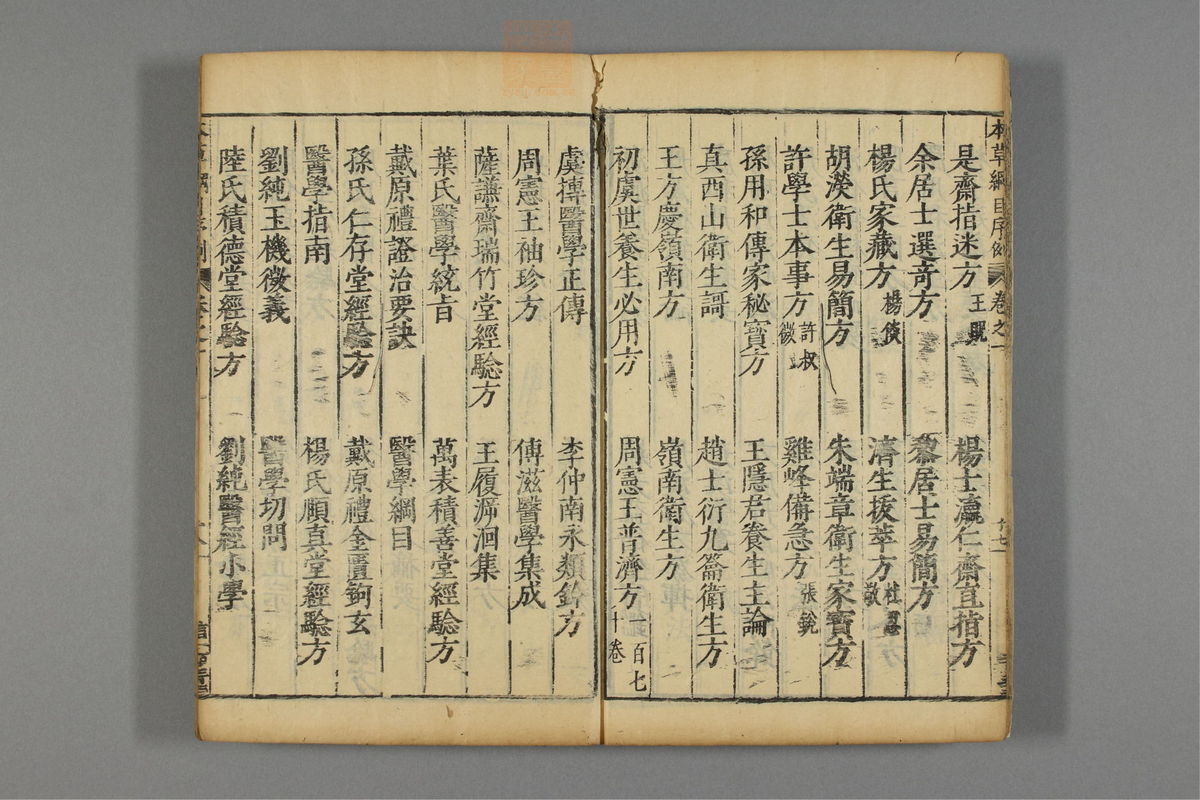 本草綱目序例 卷之一
是齋指迷方 王貺 楊士瀛仁齋直指方
余居士選竒方 黎居士易簡方
楊氏家藏方 楊倓 濟生拔萃方 杜思敬
胡濙衛生易簡方 朱端章衛生家寶方
許學士本事方 許叔微 雞峰備急方 張銳
孫用和傳家秘寶方 王隱君養生主論
真西山衛生謌 趙士衍九籥衛生方
王方慶嶺南方 嶺南衛生方
初虞世養生必用方 周憲王普濟方 一百七十卷
虞摶醫學正傳 李仲南永類鈐方
周憲王袖珍方 傅滋醫學集成
薩謙齋瑞竹堂經驗方 王履泝洄集
葉氏醫學統旨 萬表積善堂經驗方
戴原禮證治要訣 醫學綱目
孫氏仁存堂經驗方 戴原禮金匱鉤玄
醫學指南 楊氏頤真堂經驗方
劉純玉機微義 醫學切問
陸氏積德堂經驗方 劉純醫經小學